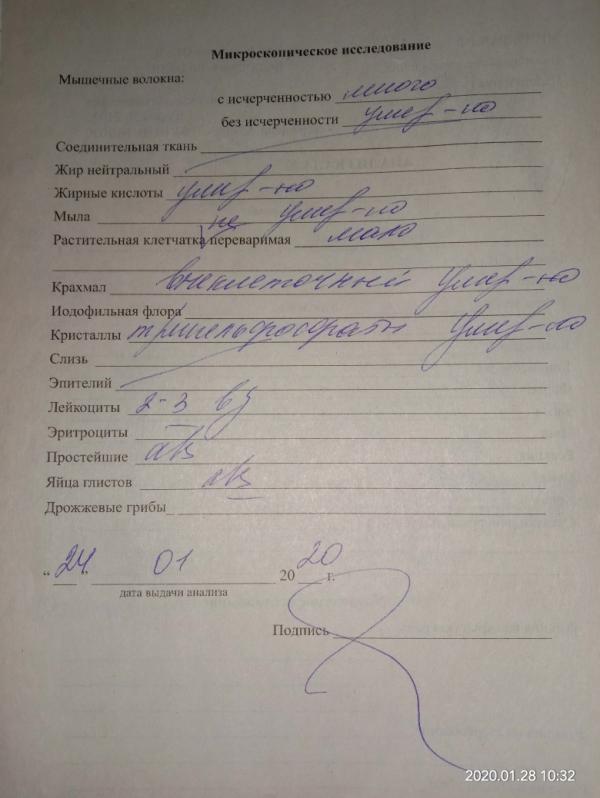 Микроскопическое исследование
Мышечные волокна:
с исчерченностью много
без исчерченности умер-но
Соединительная ткань
Жир нейтральный
Жирные кислоты умер-но
Мыла умер-но
Растительная клетчатка не переваримая мало
Крахмал внеклеточный умер-но
Иодофильная флора
Кристаллы трипельфосфаты умер-но
Слизь
Эпителий
Лейкоциты 2-3
Эритроциты
Простейшие
Яйца глистов
Дрожжевые грибы
“24” 01 2020 г.
дата выдачи анализа
Подпись
2020.01.28 10:32